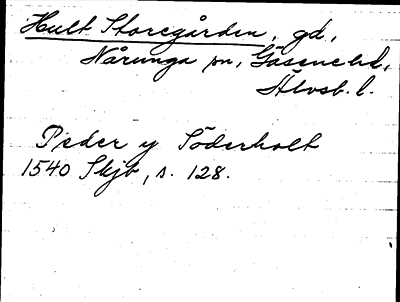 Hult Storegården, gd,
Nårunga sn, Gäsene hd,
Älvsb. l.
Peder y Söderholt
1540 Skjb, s. 128.